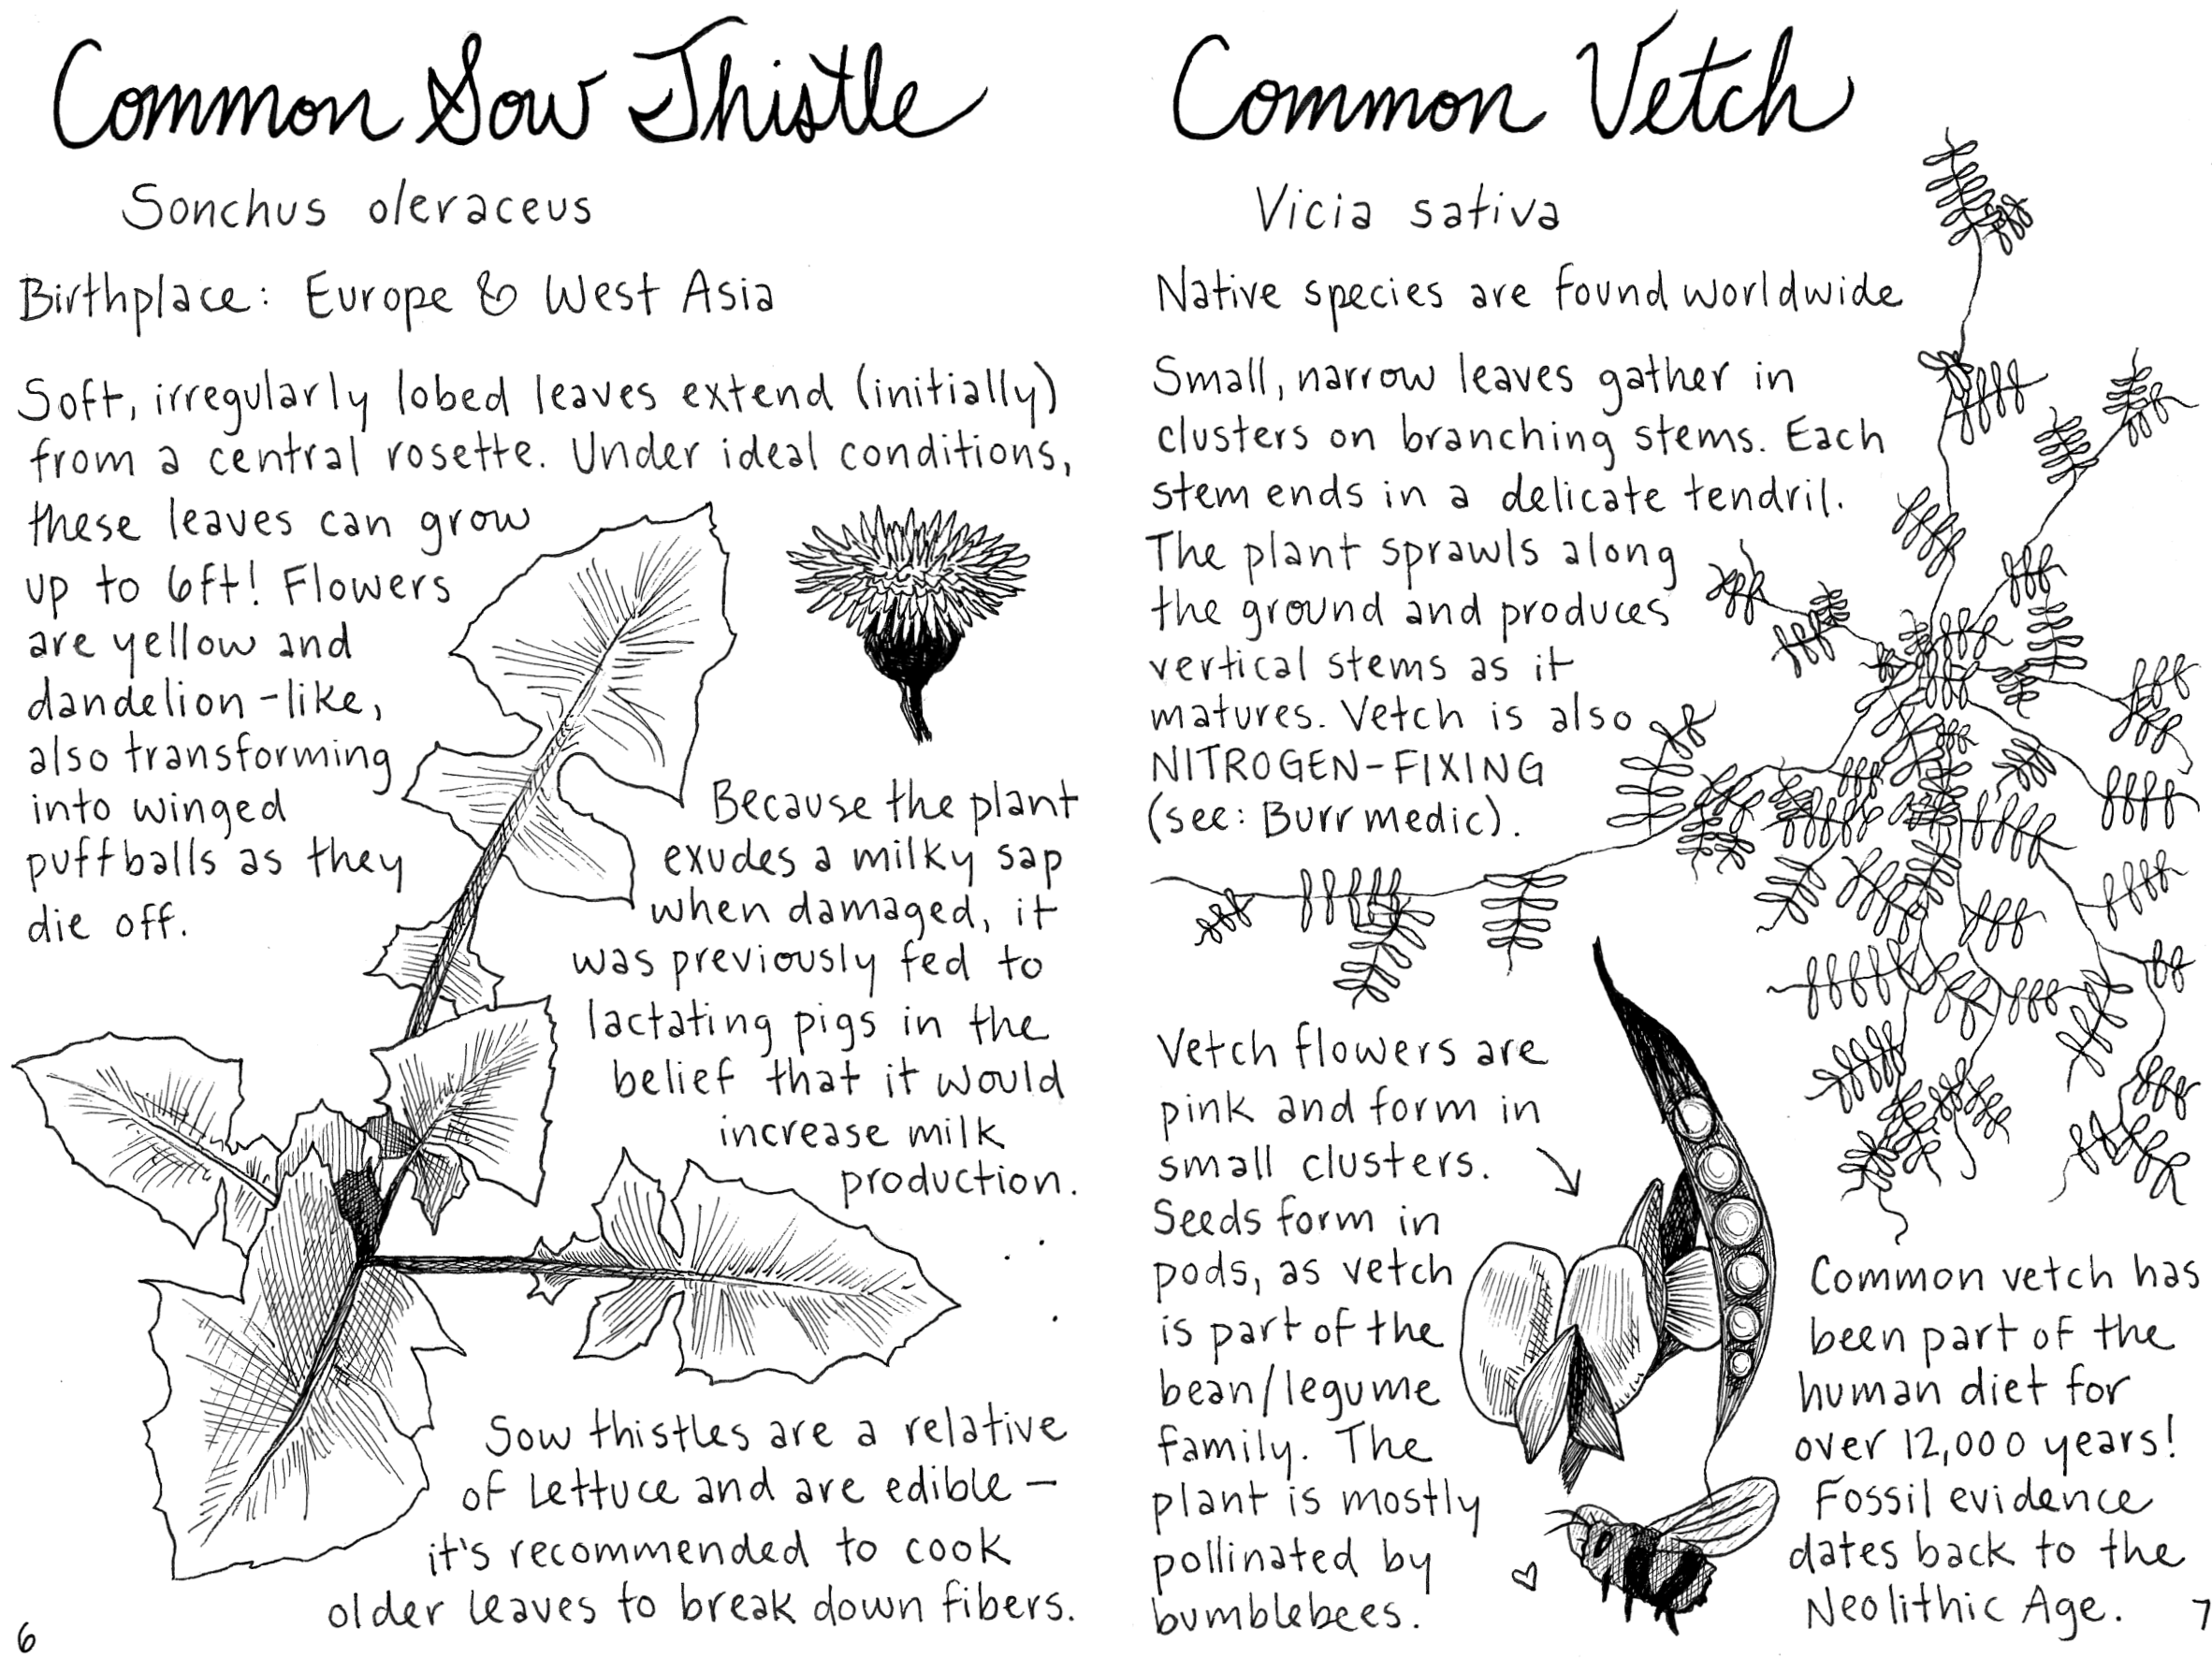 Common Sow Thistle
Sonchus oleraceus
Birthplace: Europe & West Asia
Soft, irregularly lobed leaves extend (initially)
from a central rosette. Under ideal conditions,
these leaves can grow
up to 6ft! Flowers
are yellow and
dandelion-like,
also transforming
into winged
puffballs as they
die off.
Because the plant
exudes a milky sap
when damaged, it
was previously fed to
lactating pigs in the
belief that it would
increase milk
production.
Sow thistles are a relative
of lettuce and are edible –
it's recommended to cook
older leaves to break down fibers.
6
Common Vetch
Vicia sativa
Native species are found worldwide
Small, narrow leaves gather in
clusters on branching stems. Each
stem ends in a delicate tendril.
The plant sprawls along
the ground and produces
vertical stems as it
matures. Vetch is also
NITROGEN-FIXING
(see: Burr medic).
Vetch flowers are
pink and form in
small clusters.
Seeds form in
pods, as vetch
is part of the
bean/legume
family. The
plant is mostly
pollinated by
bumblebees.
Common vetch has
been part of the
human diet for
over 12,000 years!
Fossil evidence
dates back to the
Neolithic Age.
7